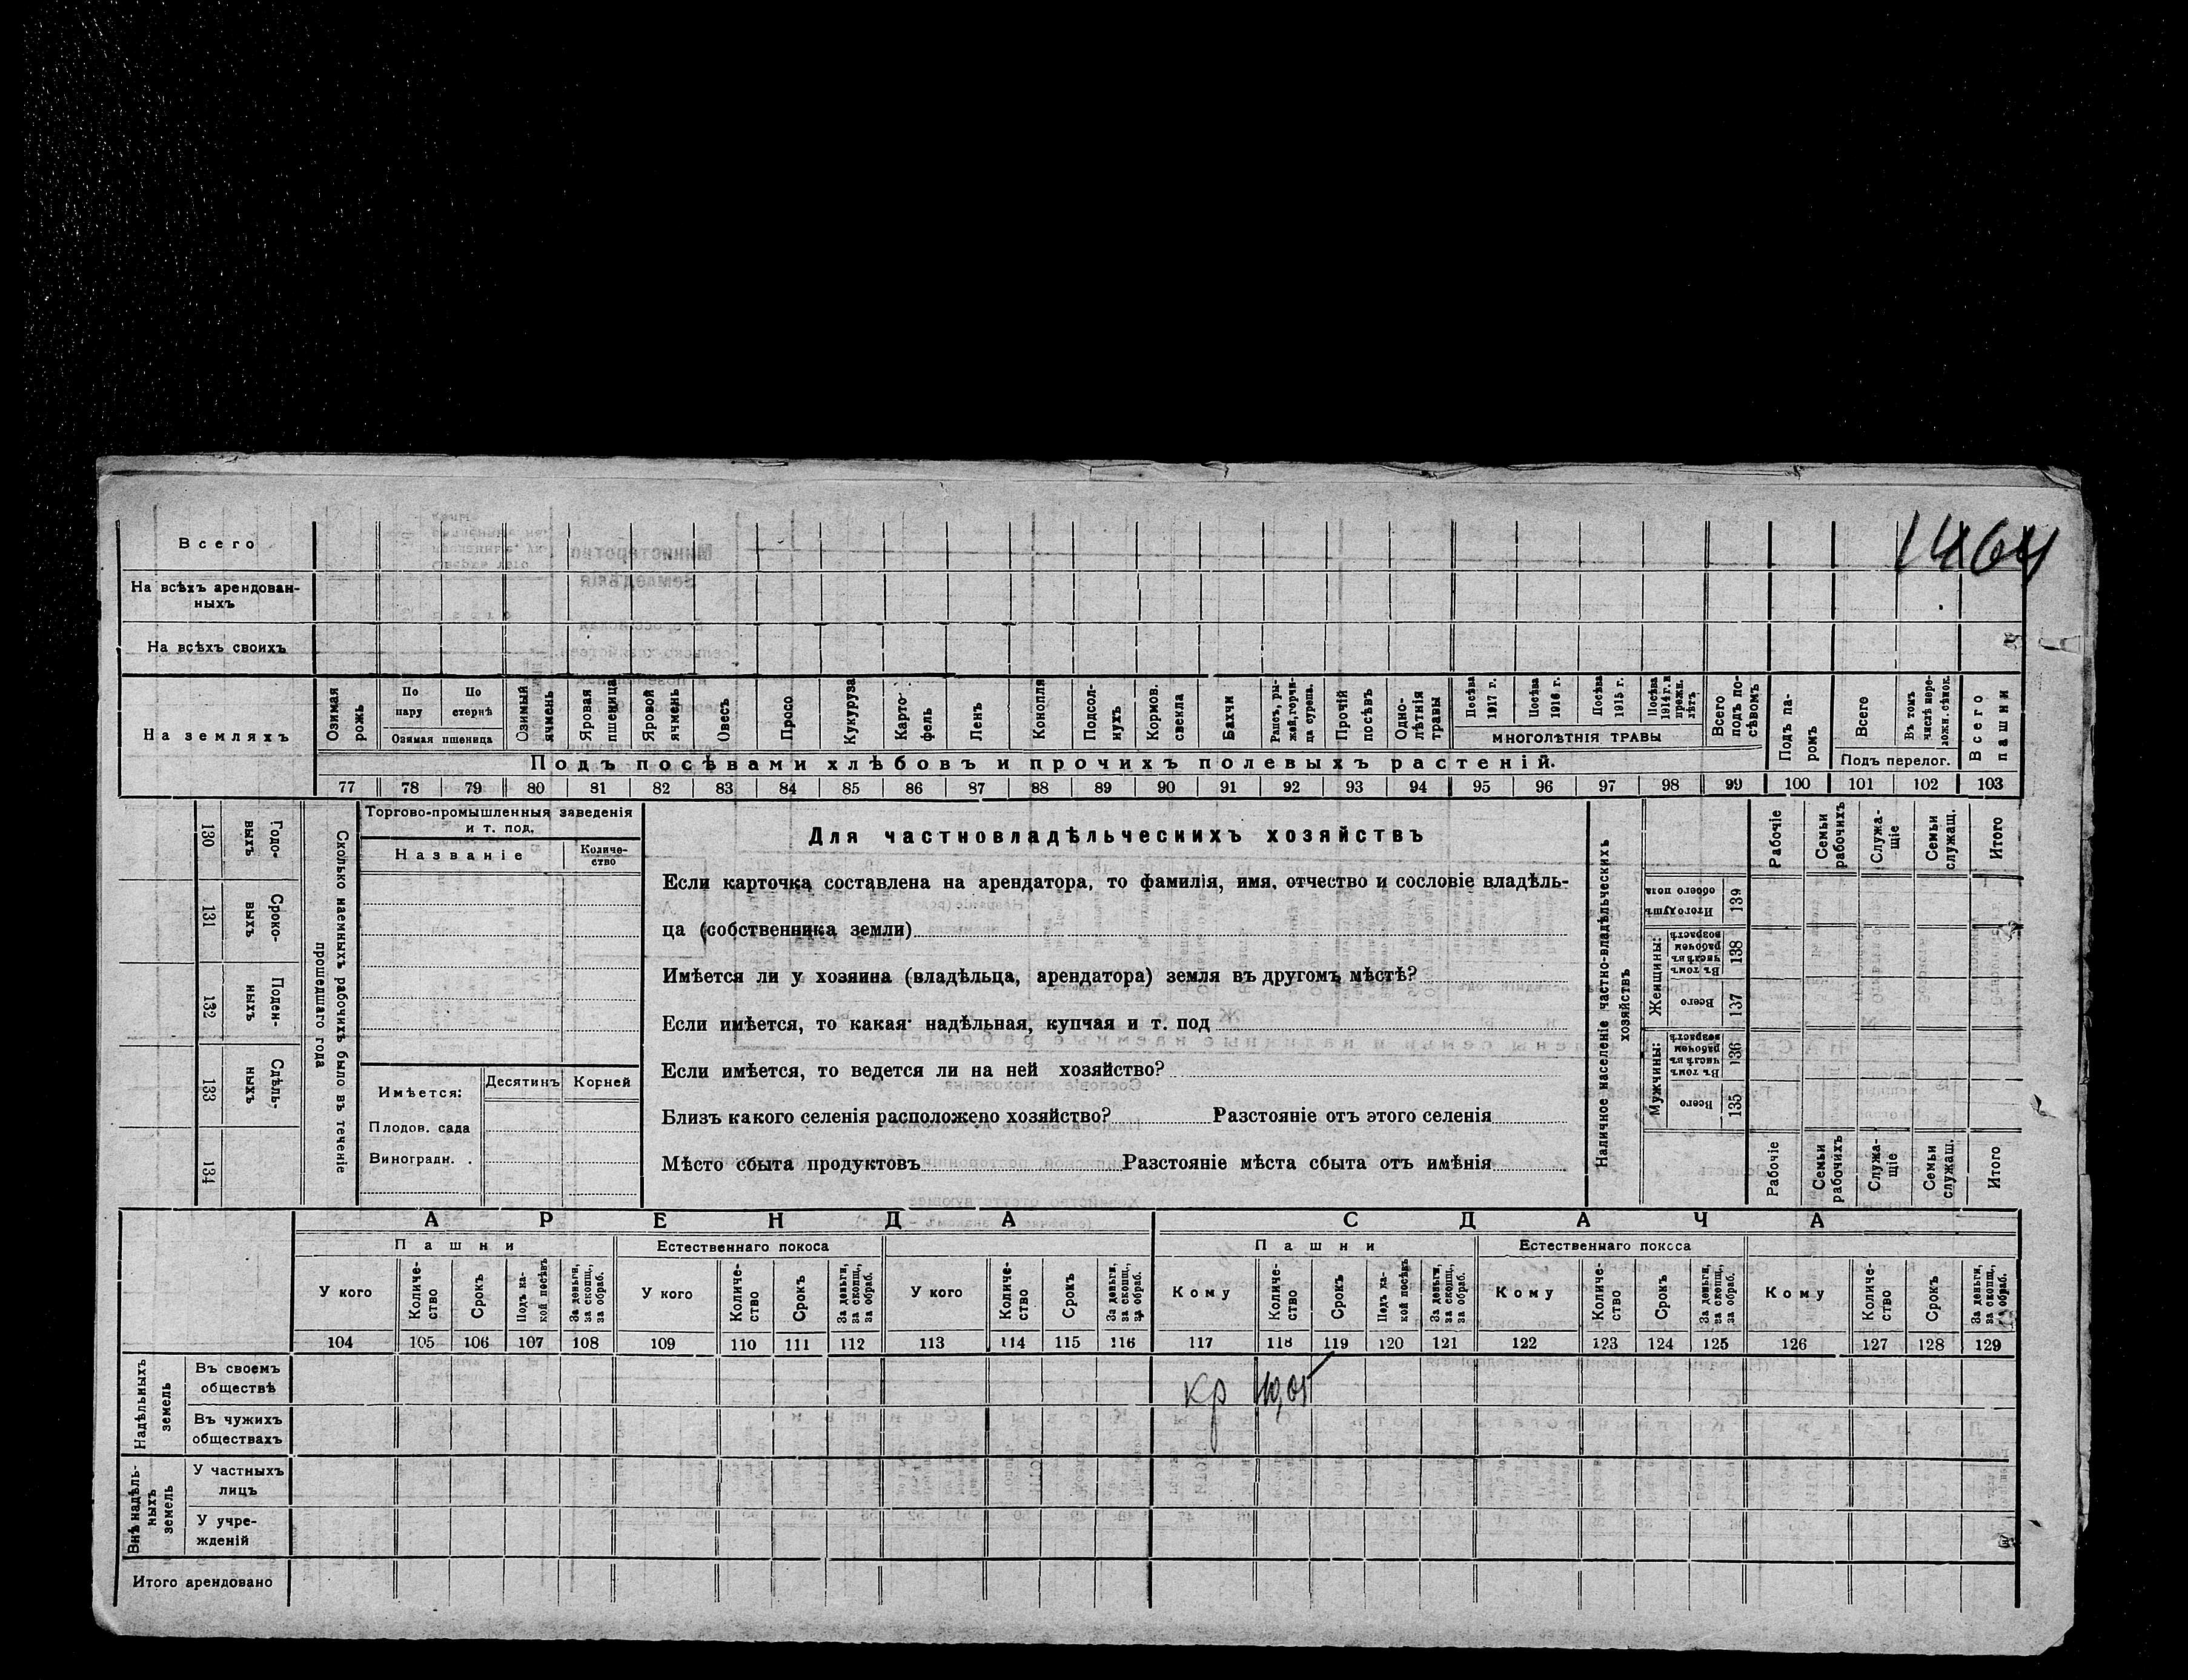 1464
Всего
На всѣхъ арендован-
ныхъ
На всѣхъ своихъ
На земляхъ
Озимая рожь
По пару
По стернѣ
Озимая пшеница
Озимый ячмень
Яровая пшеница
Яровой ячмень
Овесъ
Просо
Кукуруза
Карто-
фель
Ленъ
Конопля
Подсол-
нухъ
Кормов.
свекла
Бахчи
Рапсъ, ры-
жей, горчи-
ца сурепа.
Прочій
посѣвъ
Одно-
лѣтнія
травы
Посѣва
1917 г.
Посѣва
1916 г.
Посѣва
1915 г.
Посѣва
1914 г. и
прежн.
лѣтъ
МНОГОЛѢТНІЯ ТРАВЫ
Всего
подъ по-
сѣвомъ
Подъ па-
ромъ
Всего
Въ томъ
числѣ пере-
ложн. сѣнок.
Подъ перелог.
Всего
пашни
Подъ посѣвами хлѣбовъ и прочихъ полевыхъ растеній.
77 78 79 80 81 82 83 84 85 86 87 88 89 90 91 92 93 94 95 96 97 98 99 100 101 102 103
130 Годо-
выхъ
131 Сроко-
выхъ
132 Поден-
ныхъ
133 Сдѣль-
ныхъ
134
Сколько наемныхъ рабочихъ было въ теченіе
прошедшаго года
Торгово-промышленныя заведенія
и т. под.
Названіе
Количе-
ство
Имѣется:
Десятинъ
Корней
Плодов. сада
Виноградн. .
Для частновладѣльческихъ хозяйствъ
Если карточка составлена на арендатора, то фамилія, имя, отчество и сословіе владѣль-
ца (собственника земли)
Имѣется ли у хозяина (владѣльца, арендатора) земля въ другомъ мѣстѣ?
Если имѣется, то какая: надѣльная, купчая и т. под
Если имѣется, то ведется ли на ней хозяйство?
Близъ какого селенія расположено хозяйство? Разстояніе отъ этого селенія
Мѣсто сбыта продуктовъ Разстояніе мѣста сбыта отъ имѣнія
Наличное населеніе частно-владѣльческихъ
хозяйствъ
Рабочіе
Семьи
рабочихъ
Служа-
щіе
Семьи
служащ.
Итого
Итого душъ
обоего пола
139
Женщины:
Въ томъ
числѣ въ
рабочемъ
возрастѣ
138
Всего
137
Мужчины:
Въ томъ
числѣ въ
рабочемъ
возрастѣ
136
Всего
135
Рабочіе
Семьи
рабочихъ
Служа-
щіе
Семьи
служащ.
Итого
АРЕНДА
СДАЧА
Пашни
Естественнаго покоса
Пашни
Естественнаго покоса
У кого
Количе-
ство
Срокъ
Подъ ка-
кой посѣвъ
За деньги,
за скопщ.,
за обраб.
У кого
Количе-
ство
Срокъ
За деньги,
за скопщ.,
за обраб.
У кого
Количе-
ство
Срокъ
За деньги,
за скопщ.,
за обраб.
Кому
Количе-
ство
Срокъ
Подъ ка-
кой посѣвъ
За деньги,
за скопщ.,
за обраб.
Кому
Количе-
ство
Срокъ
За деньги,
за скопщ.,
за обраб.
Кому
Количе-
ство
Срокъ
За деньги,
за скопщ.,
за обраб.
104 105 106 107 108 109 110 111 112 113 114 115 116 117 118 119 120 121 122 123 124 125 126 127 128 129
Надѣльныхъ
земель
Въ своемъ
обществѣ
кр
Въ чужихъ
обществахъ
Внѣ надѣль-
ныхъ
земель
У частныхъ
лицъ
У учре-
жденій
Итого арендовано